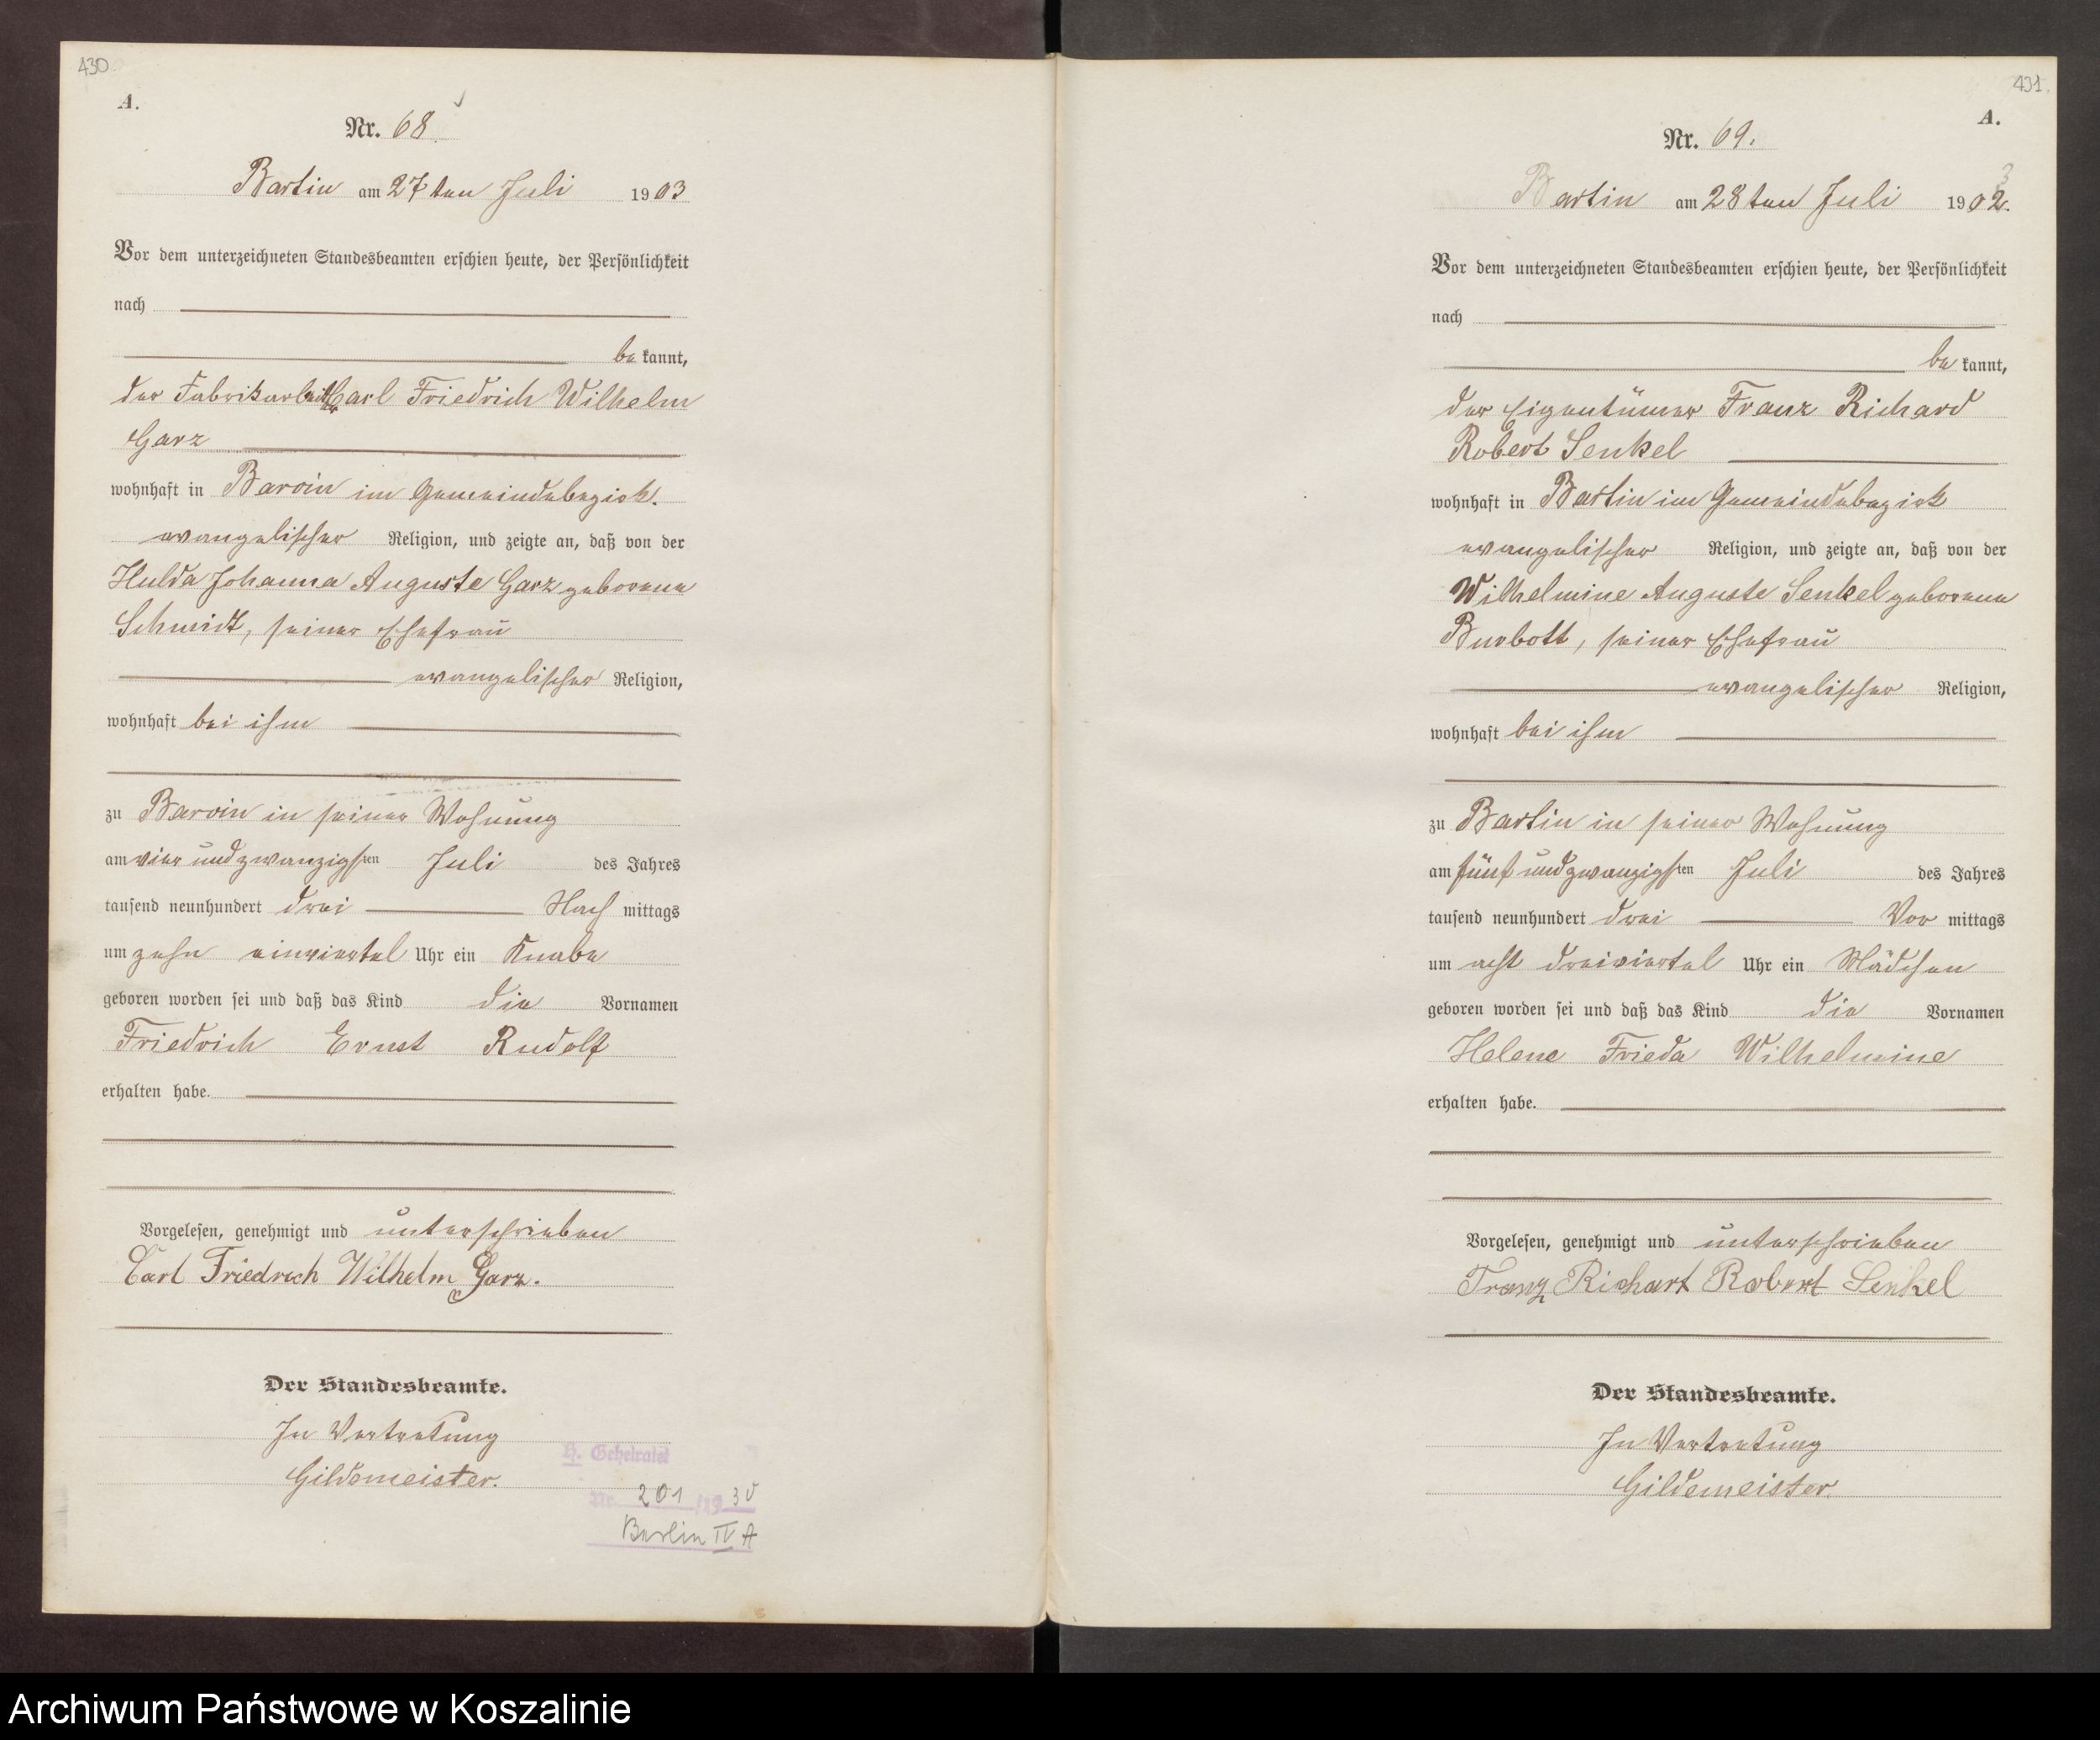 430
A.
Nr. 68.
Bartin am 27ten Juli 1903
Vor dem unterzeichneten Standesbeamten erschien heute, der Persönlichkeit
nach
be kannt,
der Fabrikarbeiter Carl Friedrich Wilhelm
Garz
wohnhaft in Barvin im Gemeindebezirk.
evangelischer Religion, und zeigte an, daß von der
Hulda Johanna Auguste Garz geborene
Schmidt, seiner Ehefrau
evangelischer Religion,
wohnhaft bei ihm
zu Barvin in seiner Wohnung
am vier und zwanzigsten Juli des Jahres
tausend neunhundert drei Nach mittags
um zehn einviertel Uhr ein Knabe
geboren worden sei und daß das Kind die Vornamen
Friedrich Ernst Rudolf
erhalten habe.
Vorgelesen, genehmigt und unterschrieben
Carl Friedrich Wilhelm Garz.
Der Standesbeamte.
In Vertretung
Gildemeister.
H. Geheiratet
Nr. 201 /19 30
Berlin IV A
431.
A.
Nr. 69.
Bartin am 28ten Juli 1902.
3
Vor dem unterzeichneten Standesbeamten erschien heute, der Persönlichkeit
nach
be kannt,
der Eigentümer Franz Richard
Robert Senkel
wohnhaft in Bartin im Gemeindebezirk
evangelischer Religion, und zeigte an, daß von der
Wilhelmine Auguste Senkel geborene
Burbott, seiner Ehefrau
evangelischer Religion,
wohnhaft bei ihm
zu Bartin in seiner Wohnung
am fünf und zwanzigsten Juli des Jahres
tausend neunhundert drei Vor mittags
um acht dreiviertel Uhr ein Mädchen
geboren worden sei und daß das Kind die Vornamen
Helene Frieda Wilhelmine
erhalten habe.
Vorgelesen, genehmigt und unterschrieben
Franz Richart Robert Senkel
Der Standesbeamte.
In Vertretung
Gildemeister
Archiwum Państwowe w Koszalinie